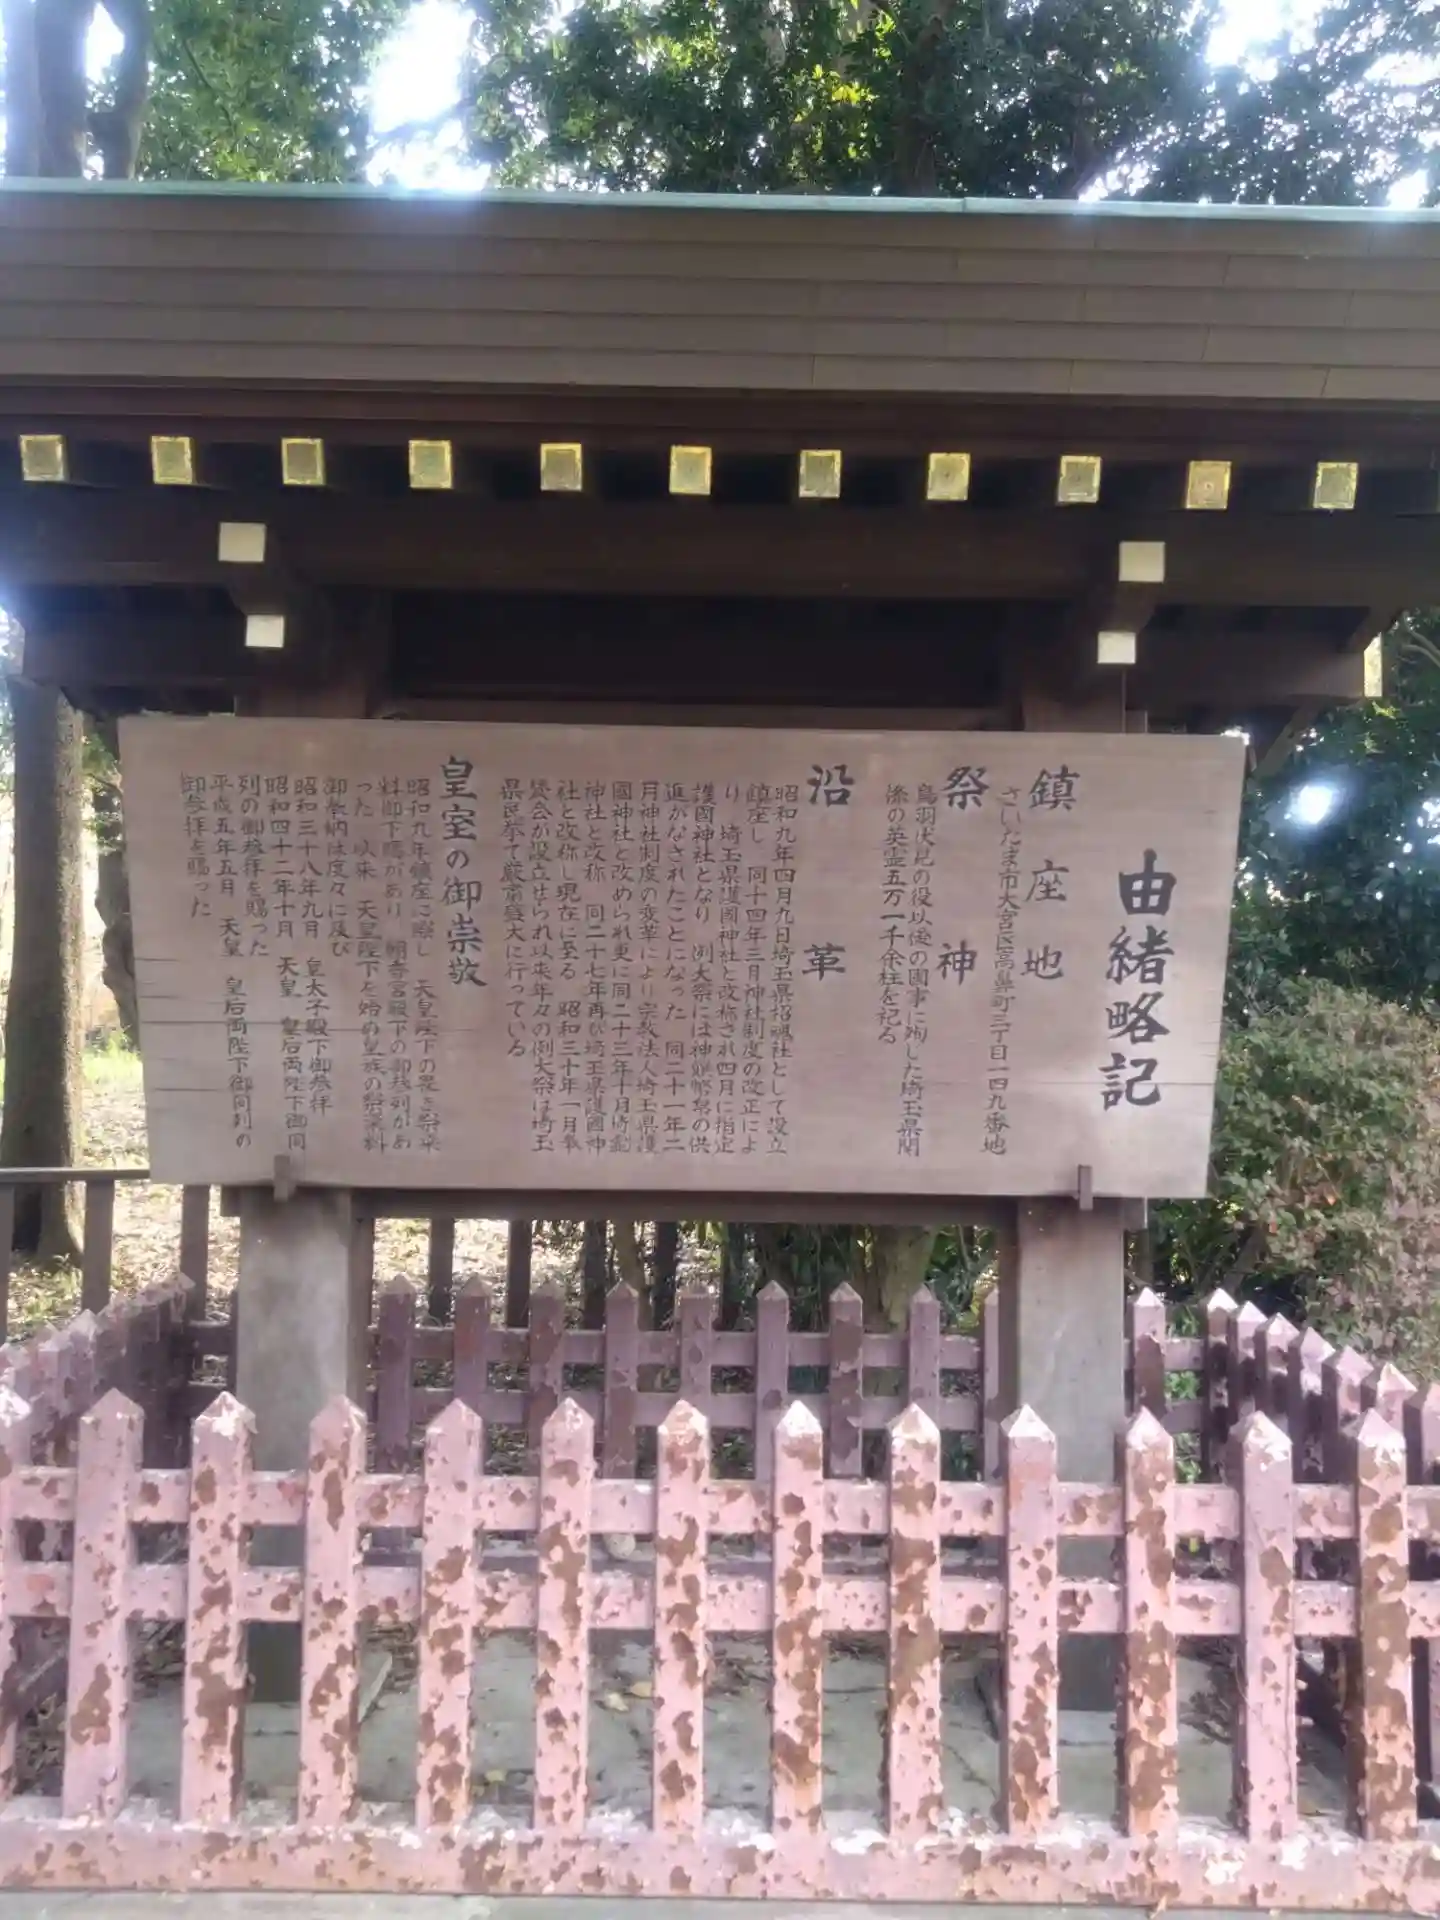 由緒略記
鎮座地
さいたま市大宮区高鼻町三丁目一四九番地
祭神
鳥羽伏見の役以後の國事に殉した埼玉県関
係の英霊五万一千余柱を祀る
沿革
昭和九年四月九日埼玉県招魂社として設立
鎮座し 同十四年三月神社制度の改正によ
り 埼玉県護國神社と改称され四月に指定
護國神社となり 例大祭には神饌幣帛の供
進がなされたことになった 同二十一年二
月神社制度の変革により宗教法人埼玉県護
國神社と改められ更に同二十三年十月埼
神社と改称 同二十七年再び埼玉県護國神
社と改称し現在に至る 昭和三十年一月奉
賛会が設立せられ以来年々の例大祭は埼玉
県民挙て厳粛盛大に行っている
皇室の御崇敬
昭和九年鎮座に際し 天皇陛下の畏き祭粢
料御下賜があり 朝香宮殿下の御参列があ
った 以来 天皇陛下を始め皇族の祭粢料
御奉納は度々に及び
昭和三十八年九月 皇太子殿下御参拝
昭和四十二年十月 天皇 皇后両陛下御同
列の御参拝を賜った
平成五年五月 天皇 皇后両陛下御同列の
御参拝を賜った